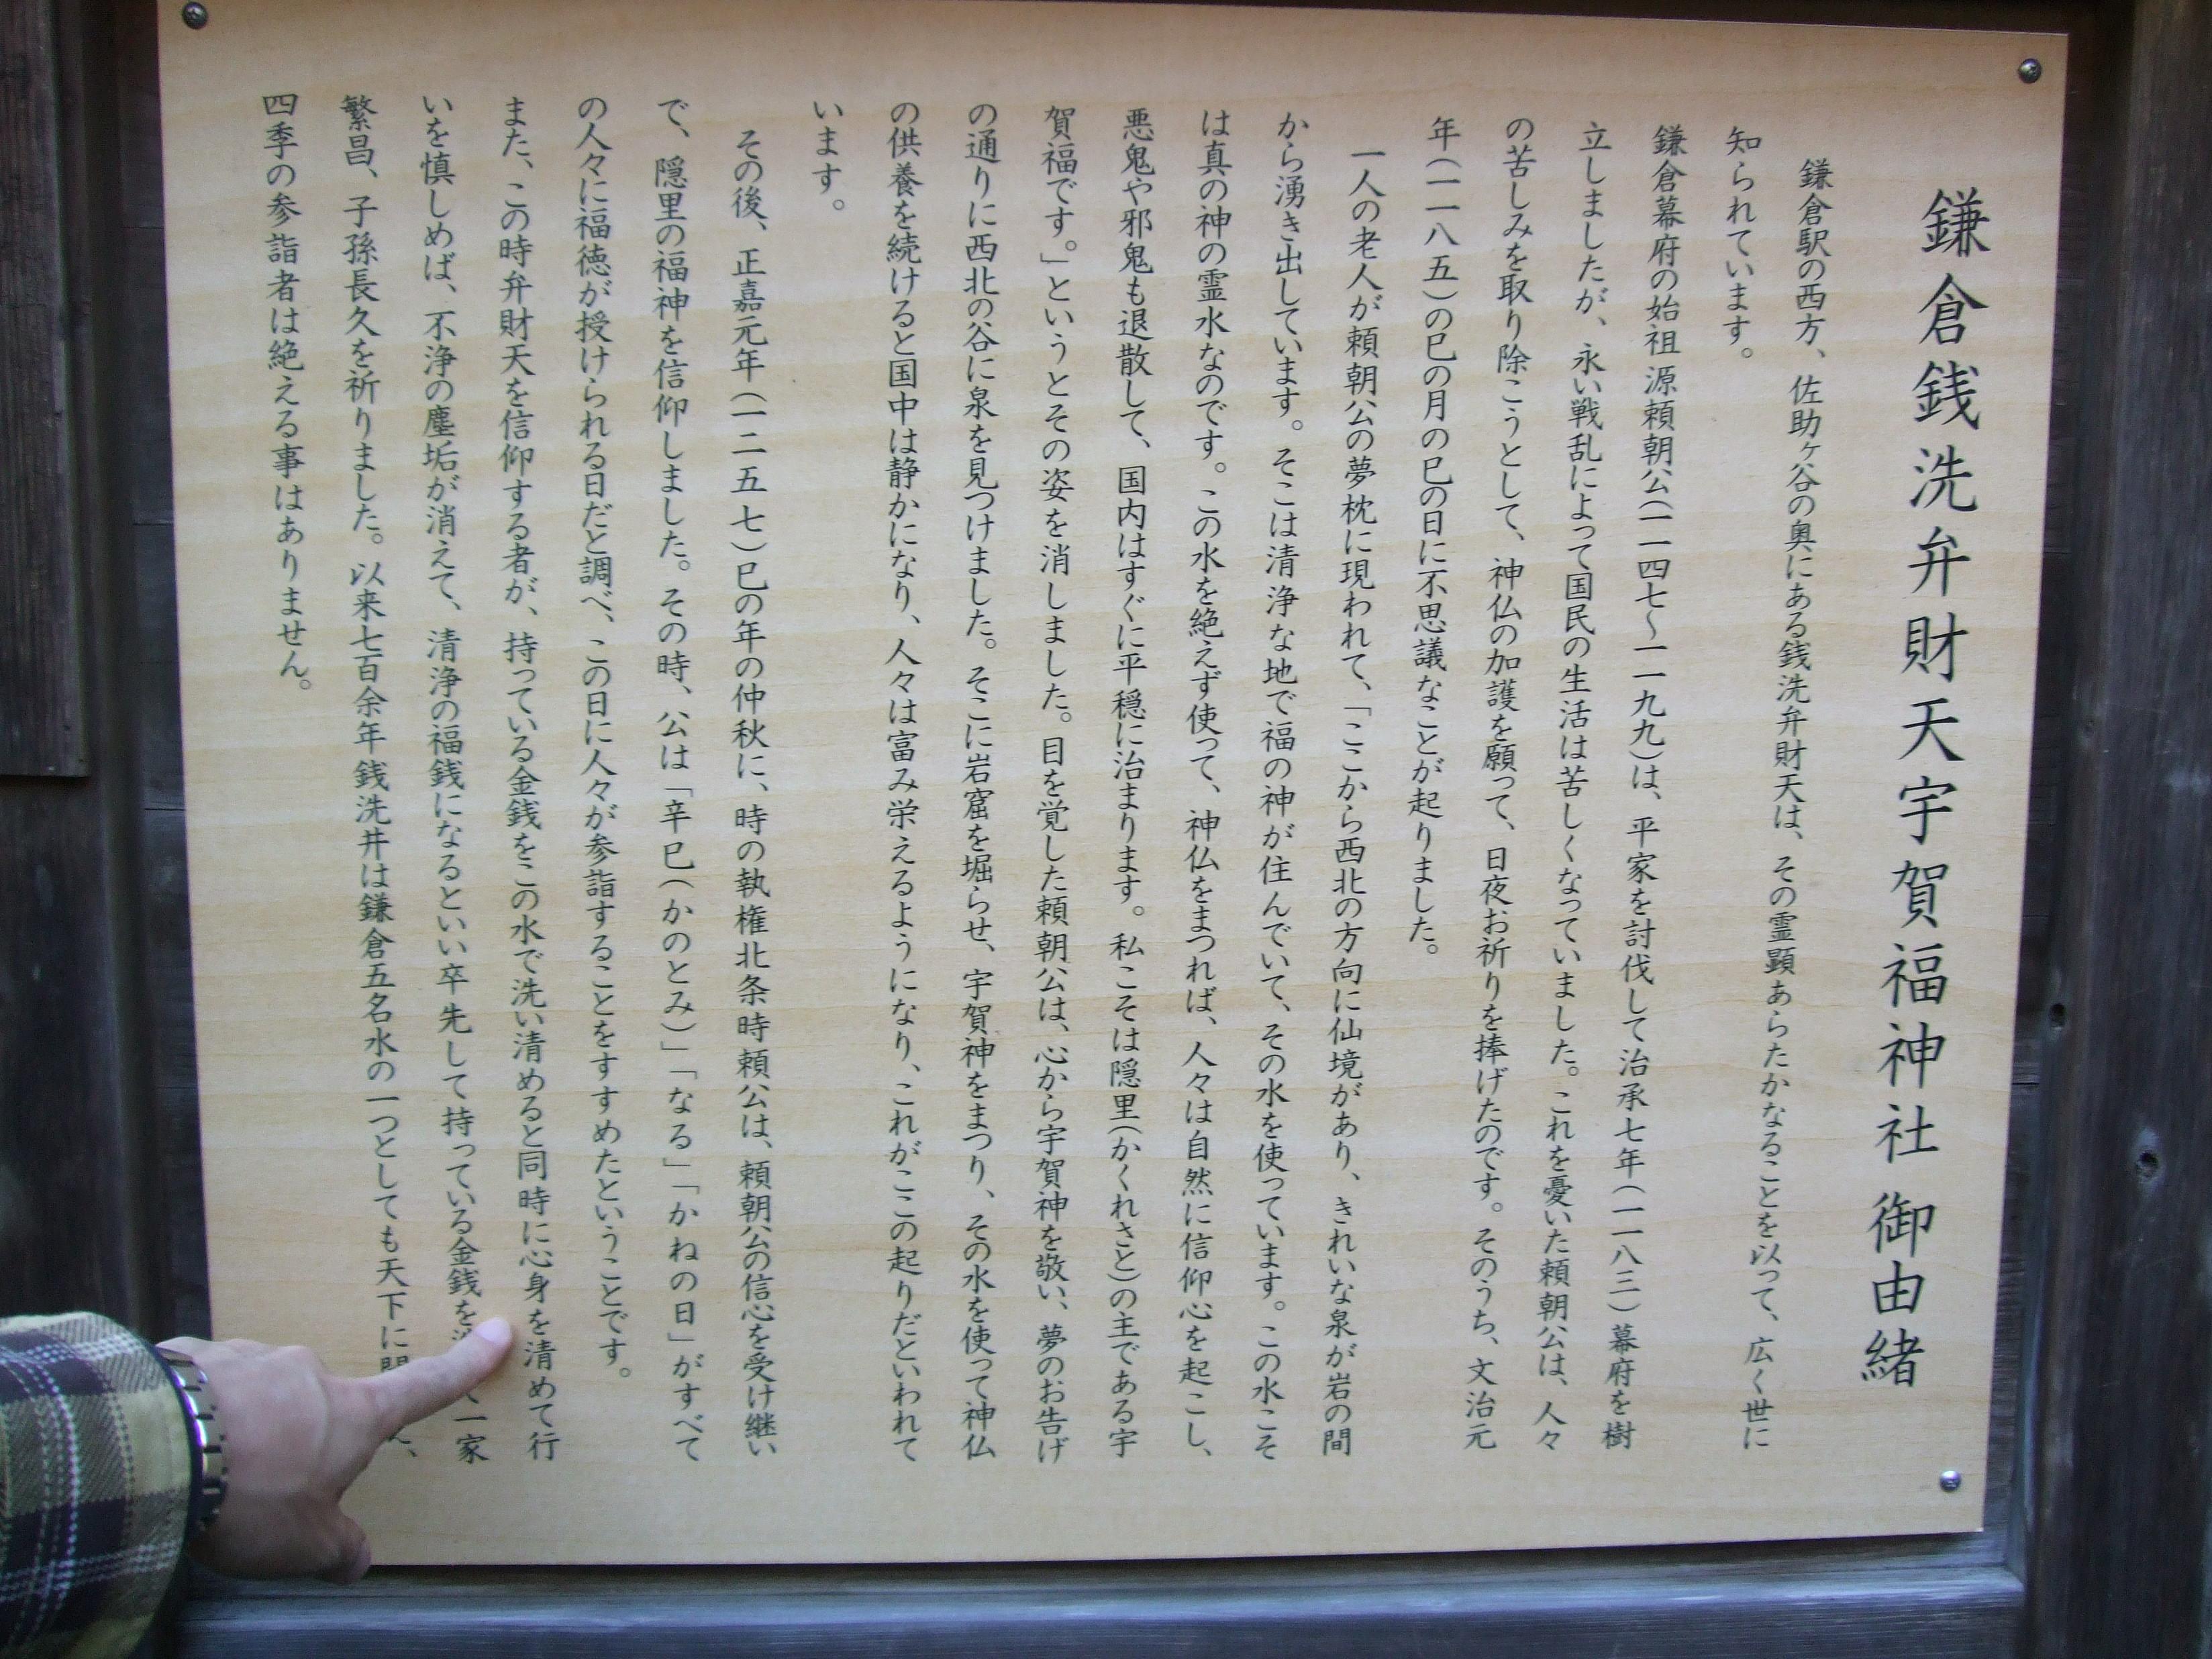 鎌倉銭洗弁財天宇賀福神社 御由緒
鎌倉駅の西方、佐助ヶ谷の奥にある銭洗弁財天は、その霊顕あらたかなることを以って、広く世に
知られています。
鎌倉幕府の始祖 源頼朝公(一一四七〜一一九九)は、平家を討伐して治承七年(一一八三)幕府を樹
立しましたが、永い戦乱によって国民の生活は苦しくなっていました。これを憂いた頼朝公は、人々
の苦しみを取り除こうとして、神仏の加護を願って、日夜お祈りを捧げたのです。そのうち、文治元
年(一一八五)の巳の月の巳の日に不思議なことが起りました。
一人の老人が頼朝公の夢枕に現われて、「ここから西北の方向に仙境があり、きれいな泉が岩の間
から湧き出しています。そこは清浄な地で福の神が住んでいて、その水を使っています。この水こそ
は真の神の霊水なのです。この水を絶えず使って、神仏をまつれば、人々は自然に信仰心を起こし、
悪鬼や邪鬼も退散して、国内はすぐに平穏に治まります。私こそは隠里(かくれさと)の主である宇
賀福です。」というとその姿を消しました。目を覚した頼朝公は、心から宇賀神を敬い、夢のお告げ
の通りに西北の谷に泉を見つけました。そこに岩窟を堀らせ、宇賀神をまつり、その水を使って神仏
の供養を続けると国中は静かになり、人々は富み栄えるようになり、これがここの起りだといわれて
います。
その後、正嘉元年(一二五七)巳の年の仲秋に、時の執権北条時頼公は、頼朝公の信心を受け継い
で、隠里の福神を信仰しました。その時、公は「辛巳(かのとみ)」「なる」「かねの日」がすべて
の人々に福徳が授けられる日だと調べ、この日に人々が参詣することをすすめたということです。
また、この時弁財天を信仰する者が、持っている金銭をこの水で洗い清めると同時に心身を清めて行
いを慎しめば、不浄の塵垢が消えて、清浄の福銭になるといい卒先して持っている金銭を 一家
繁昌、子孫長久を祈りました。以来七百余年銭洗井は鎌倉五名水の一つとしても天下に
四季の参詣者は絶える事はありません。